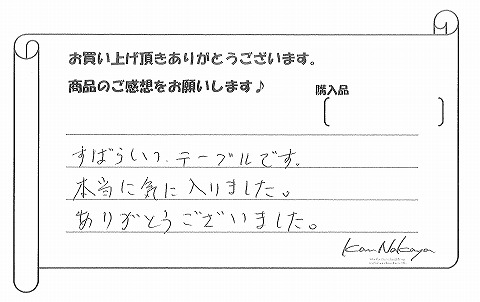 お買い上げ頂きありがとうございます。
商品のご感想をお願いします♪
購入品
すばらしい、テーブルです。
本当に気に入りました。
ありがとうございました。
Kan Nakaya